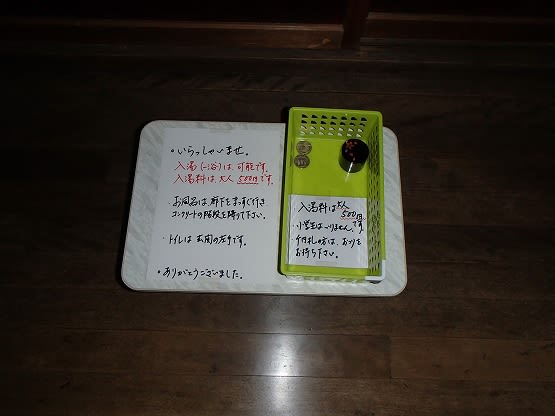 ・いらっしゃいませ。
入湯(一浴)は、可能です。
入湯料は、大人 500円です。
・お風呂は、廊下をまっすぐ行き
コンクリートの階段を降って下さい。
・トイレは、玄関の左手です。
・ありがとうございました。
入湯料は大人
500円です。
・小学生はいりません。
・千円札の方は、おつりを
お持ち下さい。